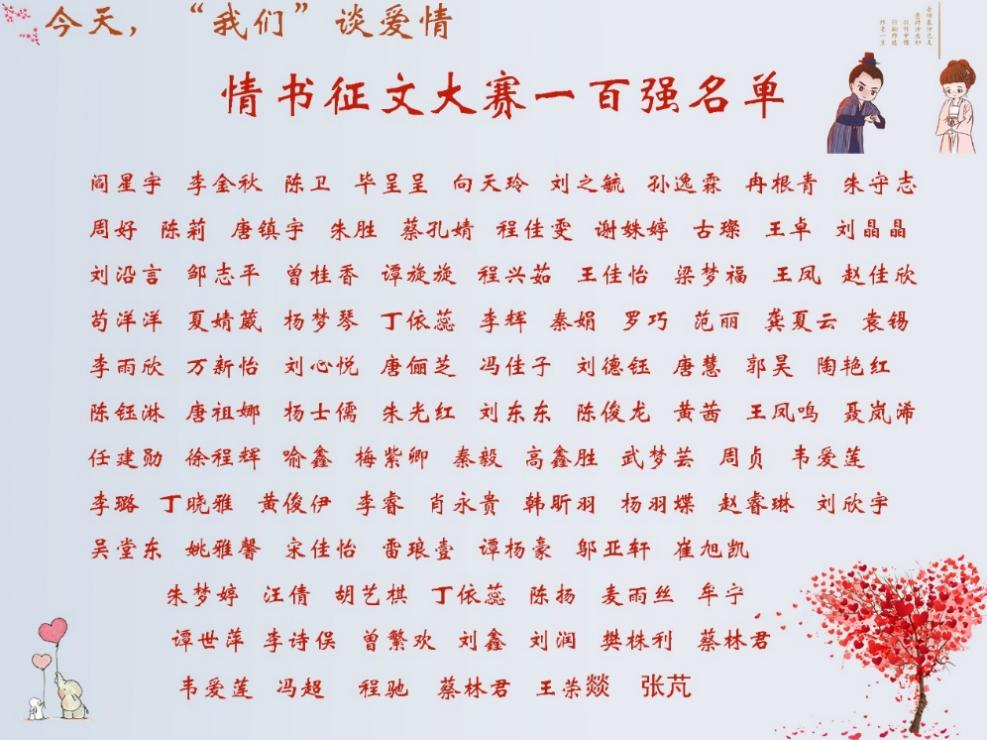 今天，“我们”谈爱情
情书征文大赛一百强名单
阎星宇 李金秋 陈卫 毕呈呈 向天玲 刘之毓 孙逸霖 冉根青 朱守志
周好 陈莉 唐镇宇 朱胜 蔡孔婧 程佳雯 谢姝婷 古璨 王卓 刘晶晶
刘沿言 邹志平 曾桂香 谭旋旋 程兴茹 王佳怡 梁梦福 王凤 赵佳欣
苟洋洋 夏婧葳 杨梦琴 丁依蕊 李辉 秦娟 罗巧 范丽 龚夏云 袁锡
李雨欣 万新怡 刘心悦 唐俪芝 冯佳子 刘德钰 唐慧 郭昊 陶艳红
陈钰淋 唐祖娜 杨士儒 朱光红 刘东东 陈俊龙 黄茜 王凤鸣 聂岚浠
任建勋 徐程辉 喻鑫 梅紫卿 秦毅 高鑫胜 武梦芸 周贞 韦爱莲
李璐 丁晓雅 黄俊伊 李睿 肖永贵 韩昕羽 杨羽蝶 赵睿琳 刘欣宇
吴堂东 姚雅馨 宋佳怡 雷琅壹 谭杨豪 邬亚轩 崔旭凯
朱梦婷 汪倩 胡艺棋 丁依蕊 陈扬 麦雨丝 牟宁
谭世萍 李诗俣 曾繁欢 刘鑫 刘润 樊株利 蔡林君
韦爱莲 冯超 程驰 蔡林君 王荣燚 张芃